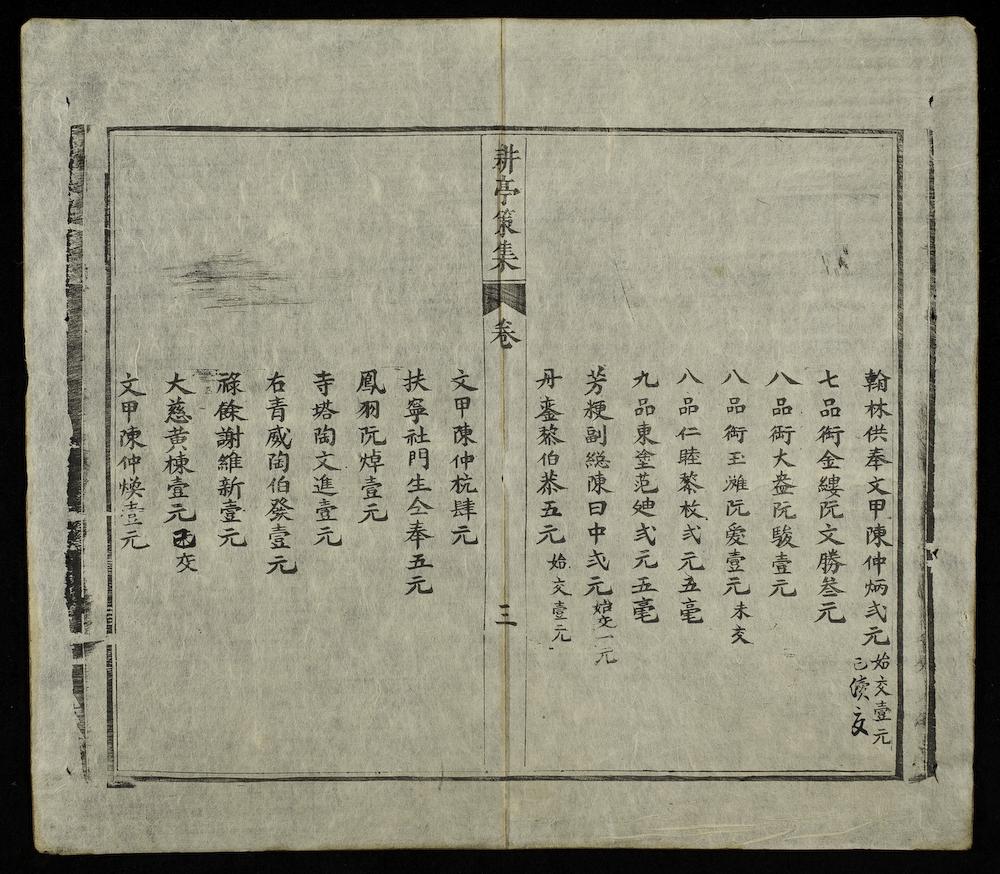 翰林供奉文甲陳仲炳弍元 始交壹元
已續交
七品衔金縷阮文勝叁元
八品衔大盎阮駿壹元
八品衔玉滩阮愛壹元 未交
八品仁睦黎枚弍元五毫
九品東塗范廸弍元五毫
芳粳副総陳曰中弍元 始交一元
丹鑾黎伯恭五元 始交壹元
耕亭策集
卷
三
文甲陳仲杭肆元
扶寧社門生仝奉五元
鳳羽阮焯壹元
寺塔陶文進壹元
右青威陶伯發壹元
祿餘謝維新壹元
大慈黄棟壹元 未交
文甲陳仲煥壹元